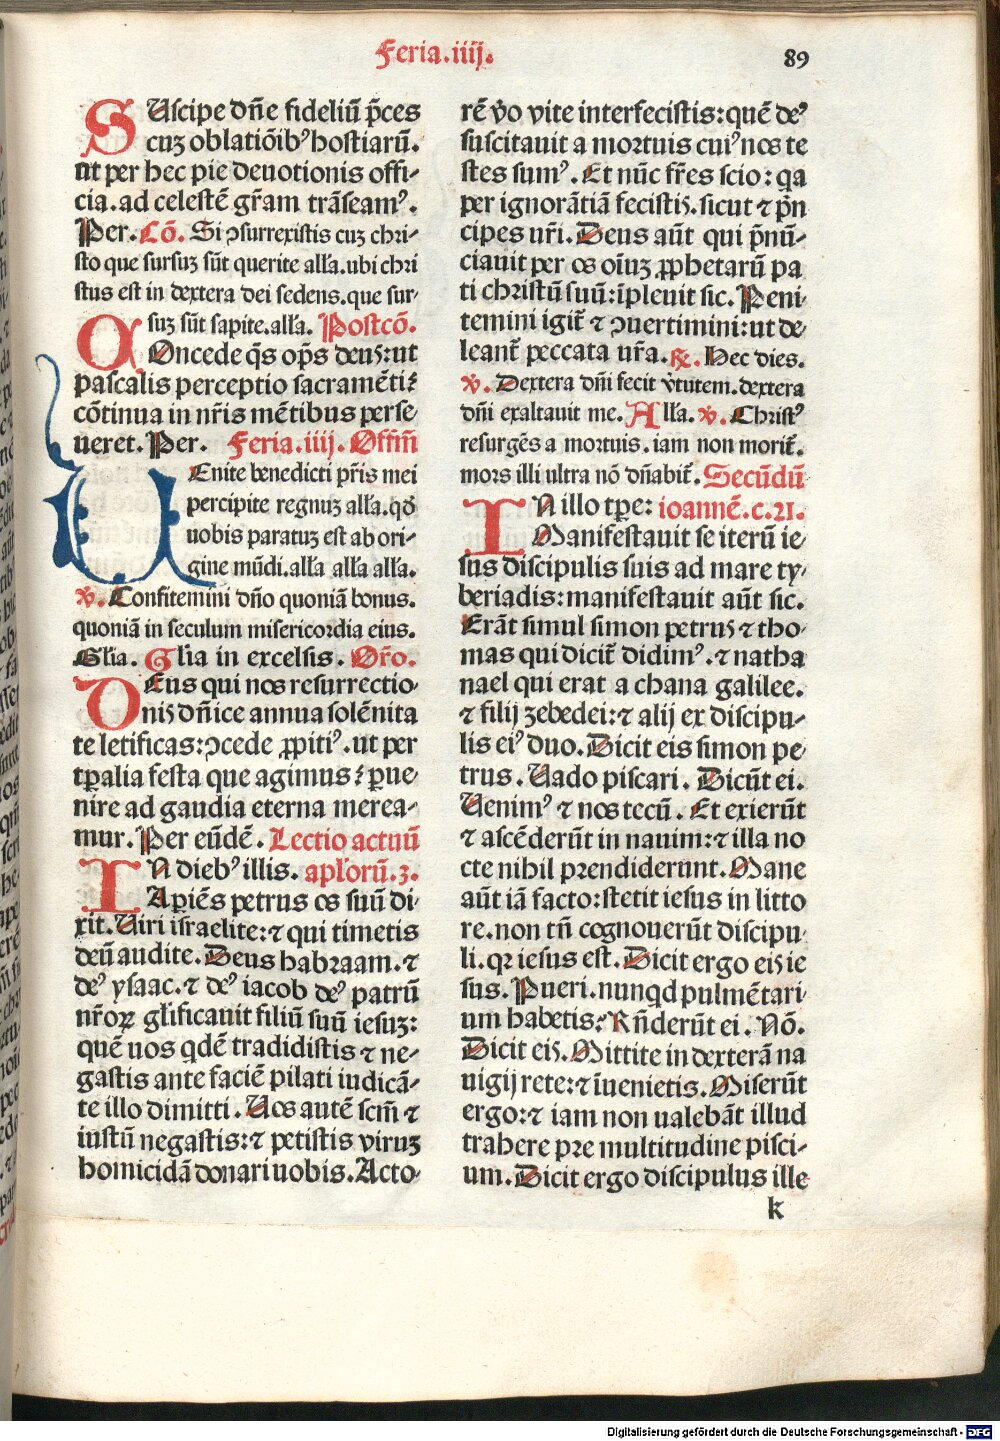 Feria.iiij.
89
SUscipe dn̄e fideliū p̄ces
cuꝫ oblatiōibꝰ hostiarū.
ut per hec pie deuotionis offi-
cia.ad celestē gr̄am trāseamꝰ.
Per. Cō. Si ꝯsurrexistis cuꝫ chri-
sto que sursuꝫ sūt querite alła.ubi chri
stus est in dextera dei sedens.que sur-
suꝫ sūt sapite.alła. Postcō.
COncede q̄s op̄s deus:ut
pascalis perceptio sacramētiꝫ
cōtinua in nr̄is mētibus perse-
ueret. Per. Feria.iiij. Offm̄
UEnite benedicti pr̄is mei
percipite regnuꝫ alła.qd̄
uobis paratuꝫ est ab ori-
gine mūdi.alła alła alła.
℣. Confitemini dn̄o quoniā bonus.
quoniā in seculum misericordia eius.
Glia. Glia in excelsis. Or̄o.
DEus qui nos resurrectio-
nis dn̄ice annua solēnita
te letificas:ꝯcede ꝓpitiꝰ.ut per
tꝑalia festa que agimus ꝫ ꝑue-
nire ad gaudia eterna merea-
mur. Per eūdē. Lectio actuū
IN diebꝰ illis. apl'orū.3.
Aꝑiēs petrus os suū di-
xit. Uiri israelite:⁊ qui timetis
deū audite. Deus habraam.⁊
deꝰ ysaac.⁊ deꝰ iacob deꝰ patrū
nr̄oꝝ gl'ificauit filiū suū iesuꝫ:
quē uos qdē tradidistis ⁊ ne-
gastis ante faciē pilati iudicā-
te illo dimitti. Uos autē scm̄ ⁊
iustū negastis:⁊ petistis viruꝫ
homicidā donari uobis. Acto-
rē v̄o vite interfecistis:quē deꝰ
suscitauit a mortuis cuiꝰ nos te
stes sumꝰ. Et nūc fr̄es scio:qa
per ignorātiā fecistis.sicut ⁊ p̄n
cipes ur̄i. Deus aūt qui p̄nū-
ciauit per os oīuꝫ ꝓphetarū pa
ti christū suū:īpleuit sic. Peni-
temini igit̄ ⁊ ꝯuertimini:ut de-
leant̄ peccata ur̄a. ℟. Hec dies.
℣. Dextera dn̄i fecit v̄tutem.dextera
dn̄i exaltauit me. Alła. ℣. Christꝰ
resurgēs a mortuis.iam non morit̄.
mors illi ultra nō dn̄abit̄. Secūdū
IN illo tꝑe: ioannē.c.21.
Manifestauit se iterū ie-
sus discipulis suis ad mare ty-
beriadis:manifestauit aūt sic.
Erāt simul simon petrus ⁊ tho-
mas qui dicit̄ didimꝰ.⁊ natha
nael qui erat a chana galilee.
⁊ filij ꝫebedei:⁊ alij ex discipu-
lis eiꝰ duo. Dicit eis simon pe-
trus. Uado piscari. Dicūt ei.
Uenimꝰ ⁊ nos tecū. Et exierūt
⁊ ascēderūt in nauim:⁊ illa no
cte nihil prendiderunt. Mane
aūt iā facto:stetit iesus in litto
re.non tn̄ cognouerūt discipu-
li.qꝛ iesus est. Dicit ergo eis ie
sus. Pueri.nunqd pulmētari-
um habetis? Rn̄derūt ei. Nō.
Dicit eis. Mittite in dexterā na
uigij rete:⁊ īuenietis. Miserūt
ergo:⁊ iam non ualebāt illud
trahere pre multitudine pisci-
um. Dicit ergo discipulus ille
k
Digitalisierung gefördert durch die Deutsche Forschungsgemeinschaft - DFG